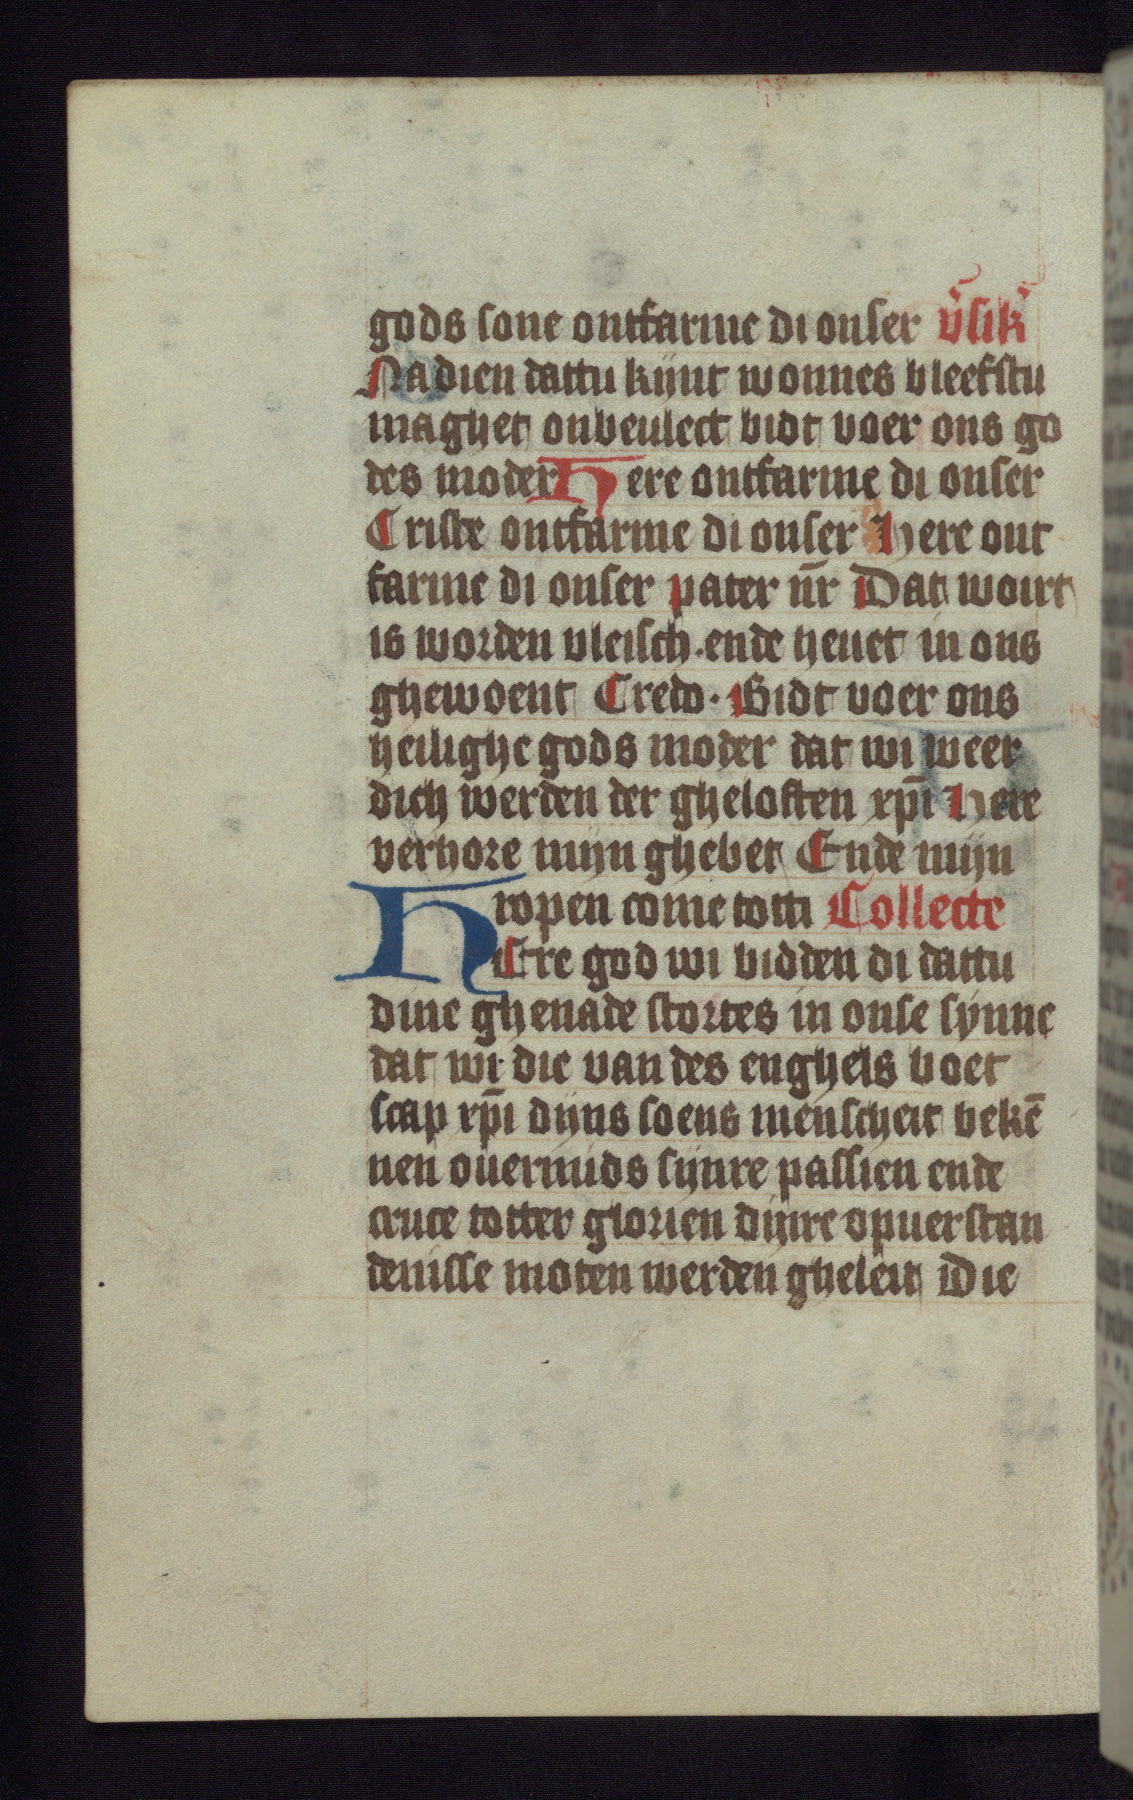 gods sone ontfarme di onser v̄sik̄
Na dien dattu kijnt wonnes bleefstu
maghet onbeulect bidt voer ons go
des moder Here ontfarme di onser
Criste ontfarme di onser Here ont
farme di onser pater nr̄ Dat woirt
is worden vleisch. ende heuet in ons
ghewoent Credo. Bidt voer ons
heilighe gods moder dat wi weer
dich werden der gheloften xp̄i Here
verhore mijn ghebet Ende mijn
ropen come totti Collecte
HEre god wi bidden di dattu
dine ghenade stortes in onse synne
dat wi die van des enghels boet
scap xp̄i dijns soens menscheit bekē
nen ouermids sijnre passien ende
cruce totter glorien dijnre opuerstan
denisse moten werden gheleit Die